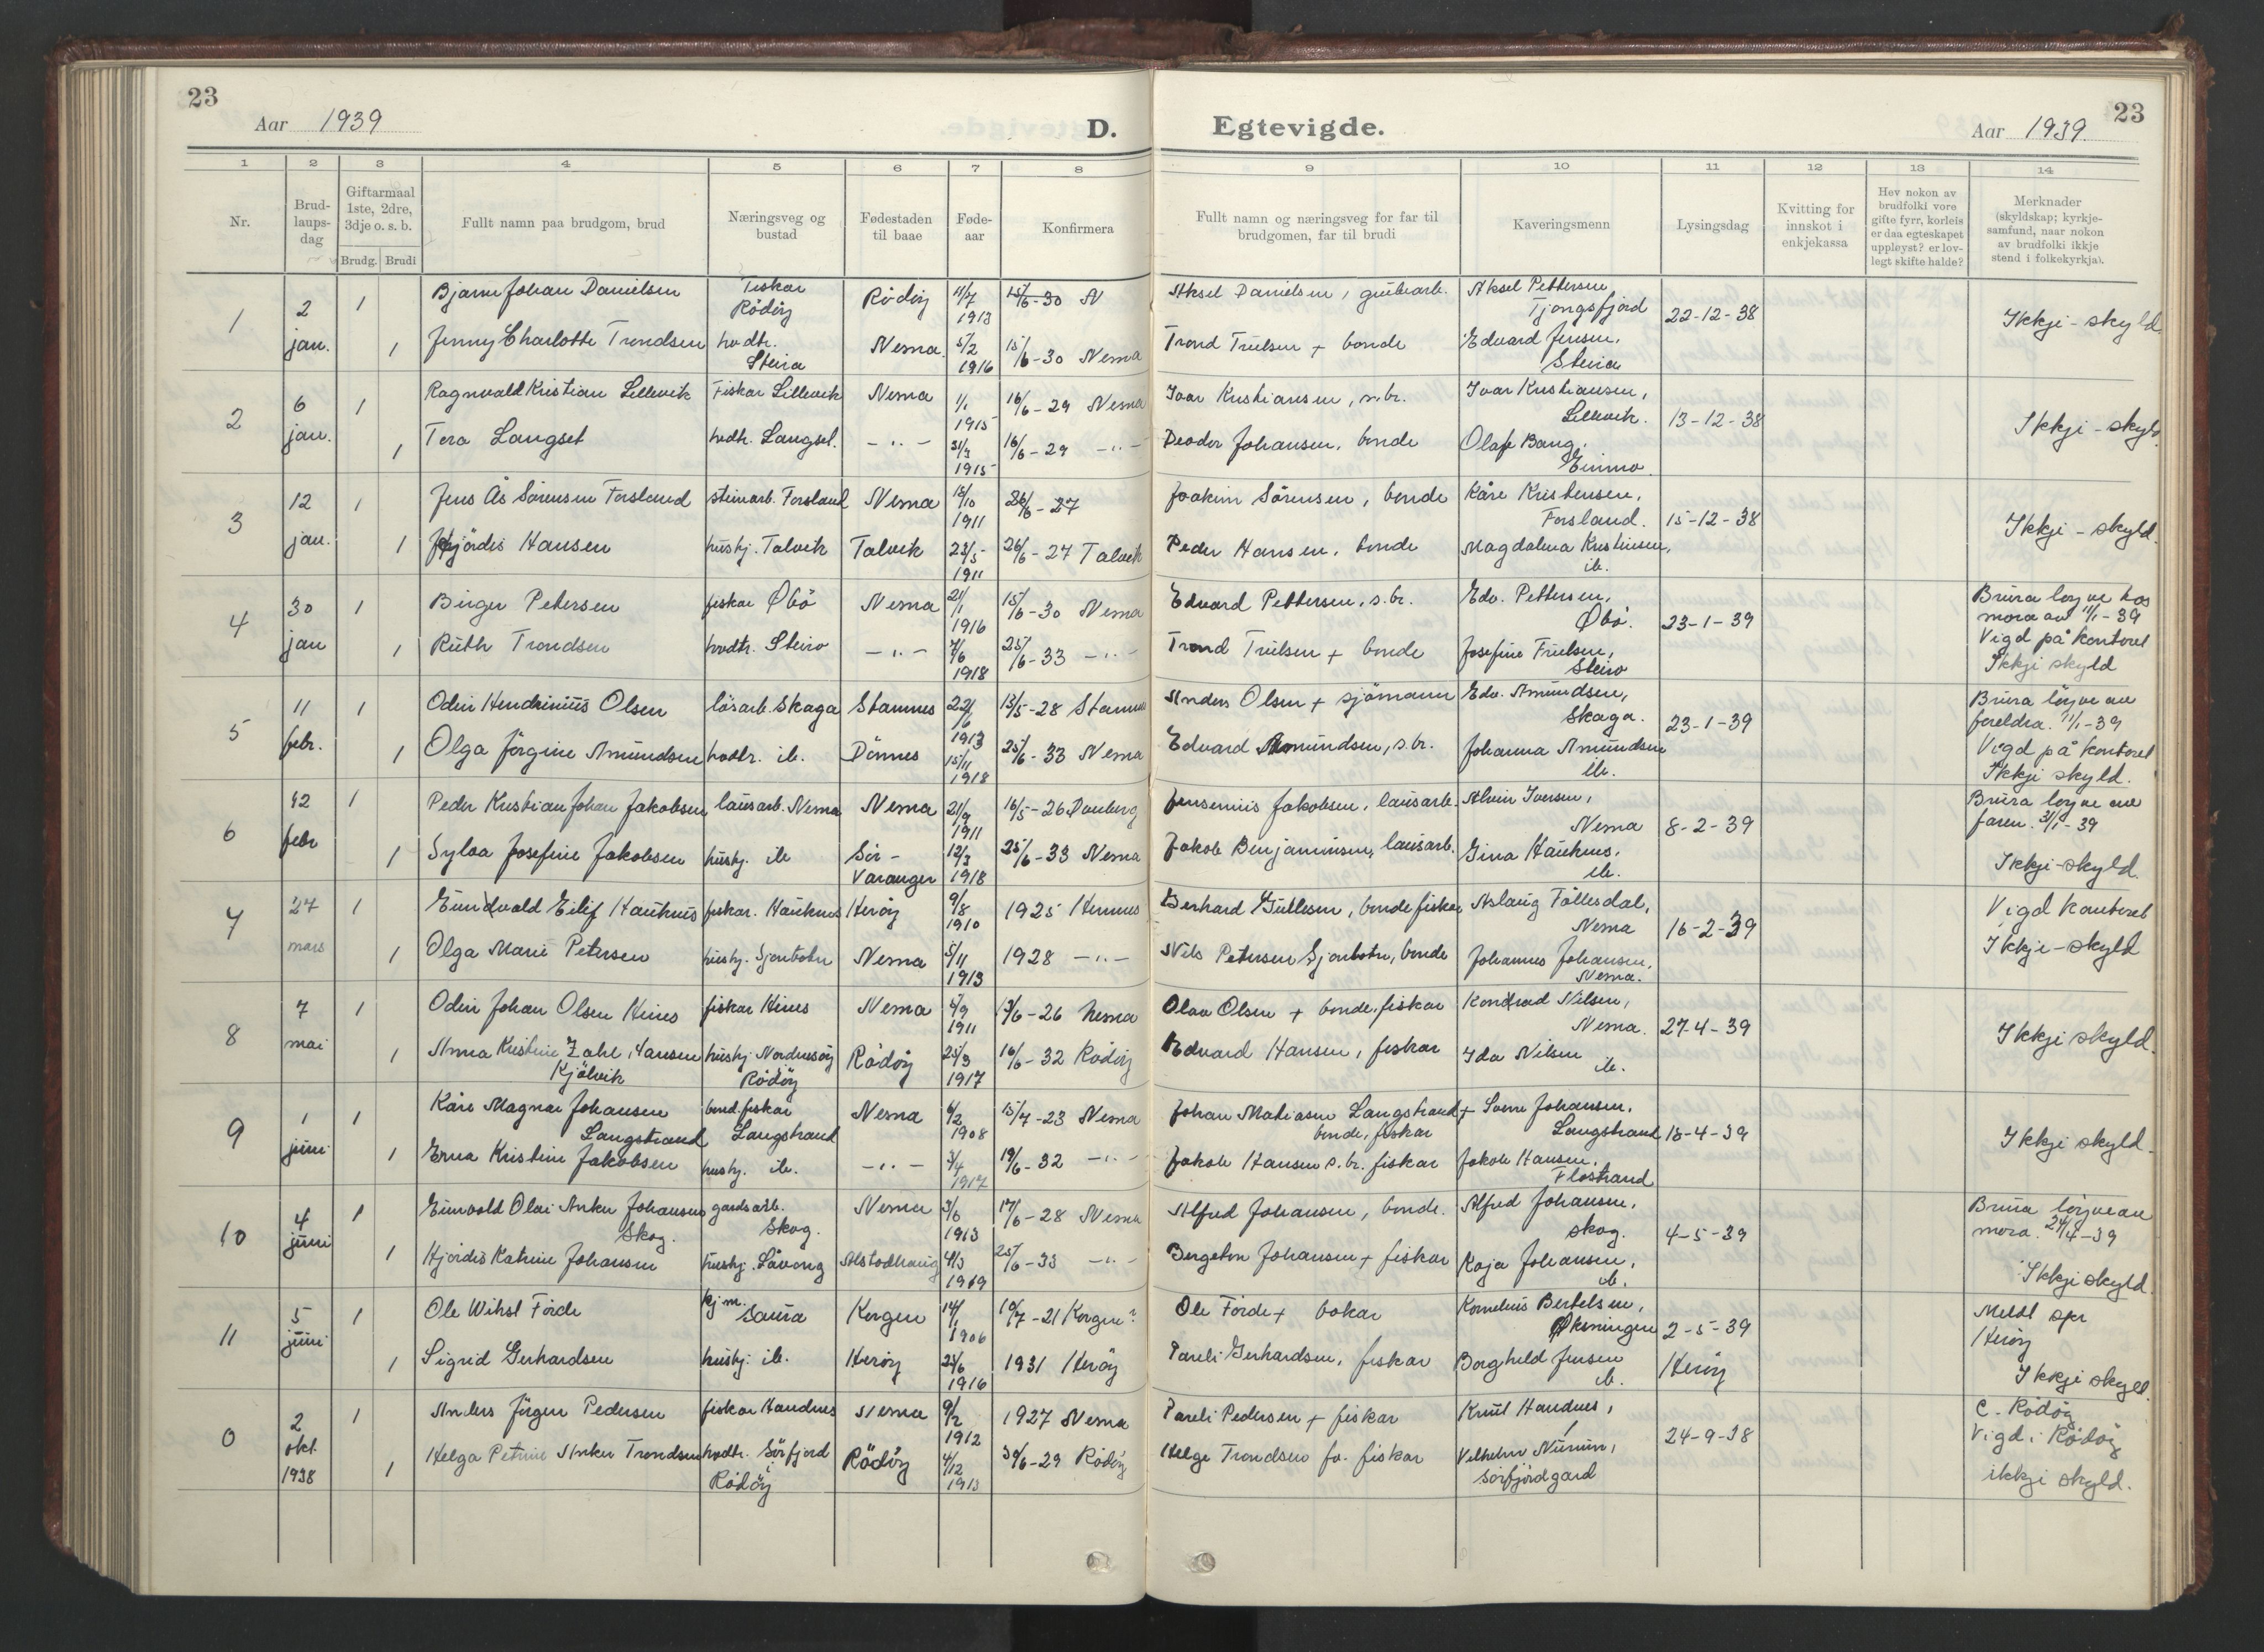 23
Aar 1939
D.
Egtevigde.
Aar 1939.
23
1 2 3 4 5 6 7 8 9 10 11 12 13 14
Nr.
Brud-
laups-
dag
Giftarmaal
1ste, 2dre,
3dje o. s. b.
Brudg. Brudi
Fullt namn paa brudgom, brud
Næringsveg og
bustad
Fødestaden
til baae
Føde-
aar
Konfirmera
Fullt namn og næringsveg for far til
brudgomen, far til brudi
Kaveringsmenn
Lysingsdag
Kvitting for
innskot i
enkjekassa
Hev nokon av
brudfolki vore
gifte fyrr, korleis
er daa egteskapet
uppløyst? er lov-
legt skifte halde?
Merknader
(skyldskap; kyrkje-
samfund, naar nokon
av brudfolki ikkje
stend i folkekyrkja).
1 2 jan. 1 Bjarne Johan Danielsen Fiskar Rödöy Rödöy 11/7 1913 15/6-30 N Aksel Danielsen, grubearb. Aksel Pettersen Tjongsfjord 22-12-38 Ikkji-skyld
1 Jenny Charlotte Trondsen hvdtr. Steira Nesna 5/2 1916 15/6-30 Nesna Trond Trulsen + bonde Edvard Jensen, Steira
2 6 jan. 1 Ragnvald Kristian Lillevik Fiskar Lillevik Nesna 1/1 1915 16/6-29 Nesna Ivar Kristiansen, s.br. Ivar Kristiansen, Lillevik. 13-12-38 Ikkji-skyld
1 Tora Langset hvdtr. Langset. -"- 31/3 1915 16/6-29 -"- Peder Johansen, bonde Olaf Bang,
3 12 jan. 1 Jens Ås Sörensen Forsland steinarb. Forsland Nesna 18/10 1911 26/6-27 Joakim Sörensen, bonde Kåre Kristensen, Forsland. 15-12-38 Ikkji-skyld.
1 Hjördis Hansen hushj. Talvik Talvik 23/5 1911 26/6-27 Talvik Peder Hansen, bonde Magdalena Kristensen, ib.
4 30 jan 1 Birger Petersen fiskar Øbö Nesna 21/1 1916 15/6-30 Nesna Edvard Pettersen, s.br. Edv. Pettersen, Øbö. 23-1-39 Brura löyve hos
mora av 11/1-39
Vigd på kontoret
Ikkji skyld
1 Ruth Trondsen hvdtr. Steiro -"- 7/6 1918 25/6-33 -"- Trond Trulsen + bonde Josefine Trulsen, Steiro
5 11 febr. 1 Odin Hendrinius Olsen lösarb. Skaga Stamnes 22/6 1913 13/5-28 Stamnes Anders Olsen + sjömann Edv. Amundsen, Skaga. 23-1-39 Brura löyve av
foreldra. 11/1-39
Vigd på kontoret
Ikkji skyld.
1 Olga Jörgine Amundsen hvdtr. ib. Dönnes 15/11 1918 25/6-33 Nesna Edvard Amundsen, s.br. Johanna Amundsen ib.
6 12 febr 1 Peder Kristian Johan Jakobsen lausarb. Nesna Nesna 21/9 1911 16/5-26 Jensenius Jakobsen, lausarb. Alvin Iversen, Nesna 8-2-39 Brura löyve av
faren. 31/1-39
Ikkji-skyld.
1 Sylva Josefine Jakobsen hushj. ib Sör-Varanger 12/3 1918 25/6-33 Nesna Jakob Benjaminsen, lausarb. Gina Hauknes, ib.
7 27 mars 1 Eindvald Eilif Hauknes fiskar. Hauknes Heröy 9/8 1910 1925 Hemnes Gerhard Gullesen, bonde fiskar Aslaug Föllesdal, Nesna 16-2-39 Vigd kontoret
Ikkji-skyld
1 Olga Marie Petersen hushj. Sjonbotn Nesna 5/11 1913 1928 -"- Nils Petersen Sjonbotn, bonde Johannes Johansen, Nesna.
8 7 mai 1 Odin Johan Olsen Hines fiskar Hines Nesna 4/9 1911 13/6-26 Nesna Olav Olsen + bonde, fiskar Kondrad Nilsen, Nesna. 27-4-39 Ikkji skyld.
1 Anna Kristine Zahl Hansen Kjölvik hushj. Nordnesöy Rödöy Rödöy 25/3 1917 16/6-32 Rödöy Edvard Hansen, fiskar Ida Nilsen ib.
9 1 juni 1 Kåre Magnar Johansen Langstrand bond. fiskar Langstrand Nesna 6/2 1908 15/7-23 Nesna Johan Matiasen Langstrand + bonde, fiskar Sverre Johansen, Langstrand 18-4-39 Ikkji skyld.
1 Erna Kristine Jakobsen hushj. ib. -"- 3/4 1917 19/6-32 -"- Jakob Hansen s.br. fiskar Jakob Hansen, Flostrand
10 4 juni 1 Einvald Olai Anker Johansen Skog. gardsarb. Skog. Nesna 3/6 1913 17/6-28 Nesna Alfred Johansen, bonde. Alfred Johansen, skog. 4-5-39 Brura löyve av
mora. 24/4-39
Ikkji skyld.
1 Hjördis Katrine Johansen hushj. Låvong Alstadhaug 4/3 1919 25/6-33 -"- Bergeton Johansen + fiskar Kaja Johansen, ib.
11 5 juni 1 Ole Wihst Förde kjm. Saura Korgen 14/1 1906 10/7-21 Korgen? Ole Förde + bakar Kornelius Bertelsen, Økningen 2-5-39 Meldt spr
Heröy
Ikkji skyld.
1 Sigrid Gerhardsen hushj. ib. Heröy 23/6 1916 1931 Heröy Pareli Gerhardsen, fiskar Borghild Jensen ib. Heröy
0 2 okt. 1938 1 Anders Jörgen Pedersen fiskar Handnes Nesna 9/2 1912 1927 Nesna Pareli Pedersen + fiskar Knut Handnes, 24-9-38 C. Rödöy
Vigd i Rödöy
ikkji skyld.
1 Helga Petrine Anker Trondsen hvdtr. Sörfjord i Rödöy Rödöy 4/12 1913 30/6-29 Rödöy Helge Trondsen fv. fiskar Vilhelm sörfjordgard